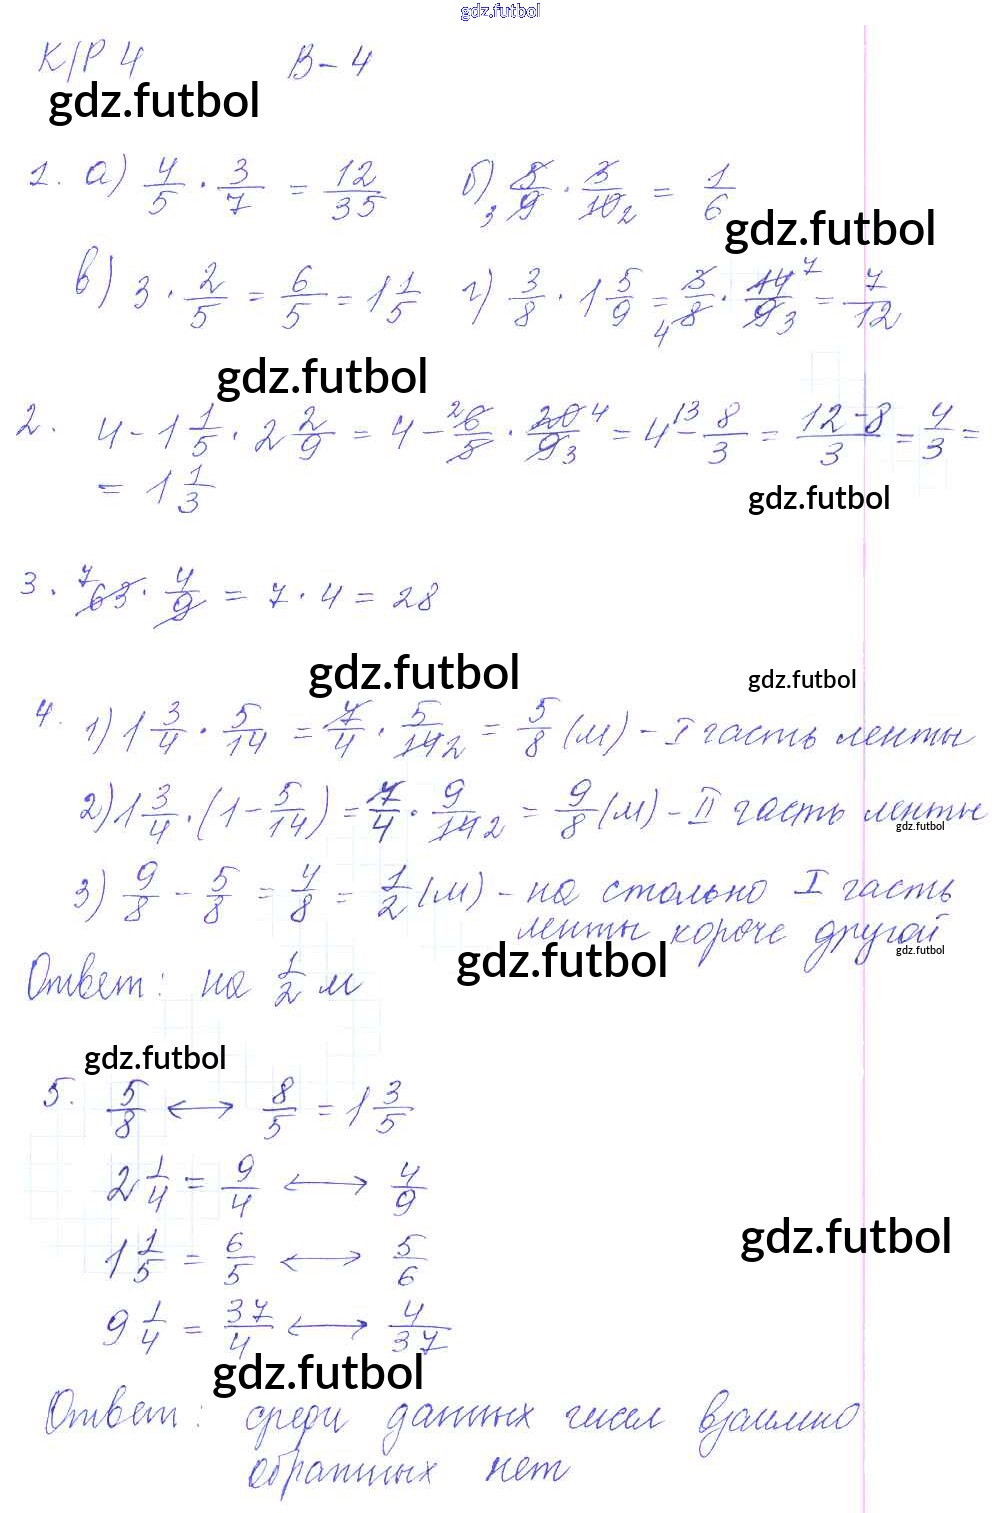 gdz.futbol
К/Р 4 В-4
gdz.futbol
1. а) 4/5 · 3/7 = 12/35 б) 5/9 · 3/10 = 1/6
gdz.futbol
в) 3 · 2/5 = 6/5 = 1 1/5 г) 3/8 · 1 5/9 = 3/8 · 14/9 = 7/12
gdz.futbol
2. 4 - 1 1/5 · 2 2/9 = 4 - 6/5 · 20/9 = 4 - 8/3 = 12-8/3 = 4/3 =
= 1 1/3
gdz.futbol
3. 63 · 4/9 = 7 · 4 = 28
gdz.futbol gdz.futbol
4. 1) 1 3/4 · 5/14 = 7/4 · 5/14 = 5/8 (м) - I часть ленты
2) 1 3/4 · (1 - 5/14) = 7/4 · 9/14 = 9/8 (м) - II часть ленты
gdz.futbol
3) 9/8 - 5/8 = 4/8 = 1/2 (м) - на столько I часть
ленты короче другой
gdz.futbol gdz.futbol
Ответ: на 1/2 м
gdz.futbol
5. 5/8 ⟷ 8/5 = 1 3/5
2 1/4 = 9/4 ⟷ 4/9
1 1/5 = 6/5 ⟷ 5/6
gdz.futbol
9 1/4 = 37/4 ⟷ 4/37
gdz.futbol
Ответ: среди данных чисел взаимно
обратных нет